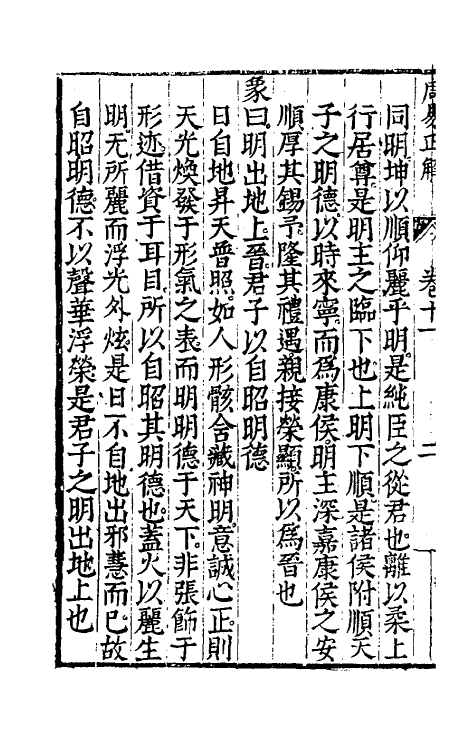 周易正解 卷十一 二
同明坤以順仰麗乎明是純臣之從君也離以柔上
行居尊是明主之臨下也上明下順是諸侯附順天
子之明德以時來寧而爲康侯明主深嘉康侯之安
順厚其錫予隆其禮遇親接榮顯所以爲晉也
象曰明出地上晉君子以自昭明德
日自地昇天普照如人形骸含藏神明意誠心正則
天光煥發于形氣之表而明明德于天下非張飾于
形迹借資于耳目所以自昭其明德也蓋火以麗生
明无所麗而浮光外炫是日不自地出邪慧而已故
自昭明德不以聲華浮榮是君子之明出地上也